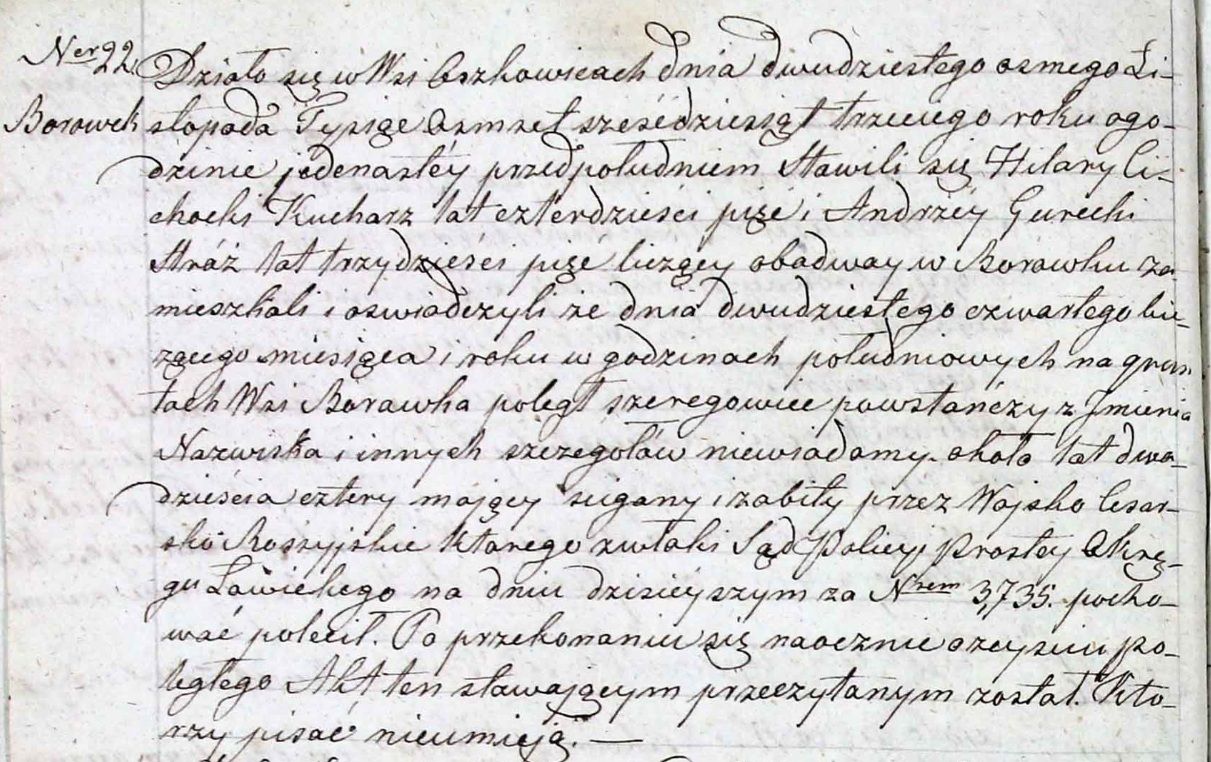 Ner 22.
Borowek
Działo się w Wsi Oszkowicach dnia dwudziestego osmego Li-
stopada Tysiąc Osmset sześćdziesiąt trzeciego roku ogo-
dzinie jedenastéy przedpołudniem Stawili się Hilary Ci-
chocki Kucharz lat czterdzieści pięc i Andrzéy Gurecki
Stróż lat trzydzieści pięc liczący obadway w Borowku za
mieszkali i oswiadczyli że dnia dwudziestego czwartego bie-
żącego miesiąca i roku w godzinach południowych na grun
tach Wsi Borowka poległ szeregowiec powstańczy z Jmienia
Nazwiska i innych szczegołów niewiadomy. około lat dwa-
dzieścia cztery mający scigany i zabity przez Wojsko Cesar-
sko Rossyjskie Którego zwłoki Sąd Policyi Prostey Okrę-
gu Łowickego na dniu dzisieyszym za Nrem 3,735. pocho-
wać polecił. Po przekonaniu się naocznie o zeysciu po-
ległego Akt ten stawającym przeczytanym został. Kto-
rzy pisać nieumieją. —